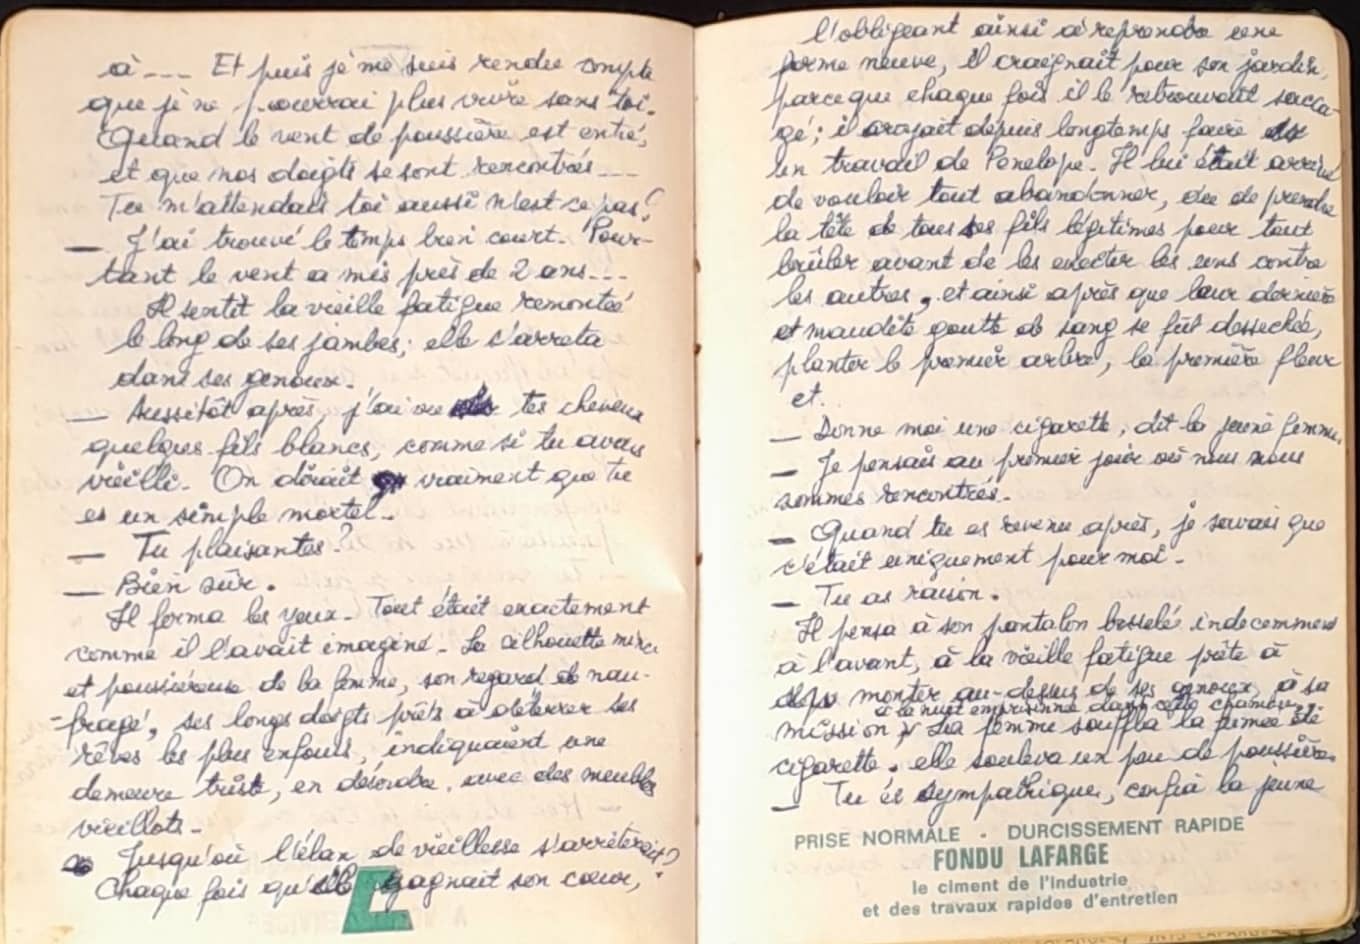 à --- Et puis je me suis rendu compte
que je ne pourrai plus vivre sans toi.
Quand le vent de poussière est entré,
et que nos doigts se sont rencontrés ---
Tu m'attendais toi aussi n'est ce pas ?
— J'ai trouvé le temps bien court. Pour-
tant le vent a mis près de 2 ans ---
Il sentit la vieille fatigue remontée
le long de ses jambes; elle s'arreta
dans ses genoux.
— Aussitôt après, j'ai vu tes cheveux
quelques fils blancs, comme si tu avais
vieilli. On dirait vraiment que tu
es un simple mortel.
— Tu plaisantes ?
— Bien sûr.
Il ferma les yeux. Tout était exactement
comme il l'avait imaginé. La silhouette mince
et poussiéreuse de la femme, son regard de nau-
-fragé, ses longs doigts prêts à déterrer ses
rêves les plus enfouis, indiquaient une
demeure triste, en désordre, avec des meubles
vieillots.
Jusqu'où l'élan de vieillesse s'arrêterait ?
Chaque fois qu'elle gagnait son cœur,
l'obligeant ainsi à reprendre une
forme neuve, il craignait pour son jardin,
parce que chaque fois il le retrouvait sacca-
gé; il croyait depuis longtemps faire
un travail de Penelope. Il lui était arrivé
de vouloir tout abandonner, ou de prendre
la tête de tous ses fils légitimes pour tout
brûler avant de les exciter les uns contre
les autres, et ainsi après que leur dernière
et maudite goutte de sang se fût dessechée,
planter le premier arbre, la première fleur
et.
— Donne moi une cigarette, dit la jeune femme.
— Je pensais au premier jour où nous nous
sommes rencontrés.
— Quand tu es revenu après, je savais que
c'était uniquement pour moi.
— Tu as raison.
Il pensa à son pantalon bosselé indecemment
à l'avant, à la vieille fatigue prête à
monter au-dessus de ses genoux, à sa
à la nuit emprisonnée dans cette chambre.
mission. La femme souffla la fumée de
cigarette, elle souleva un peu de poussière.
— Tu es sympathique, confia la jeune
PRISE NORMALE - DURCISSEMENT RAPIDE
FONDU LAFARGE
le ciment de l'industrie
et des travaux rapides d'entretien